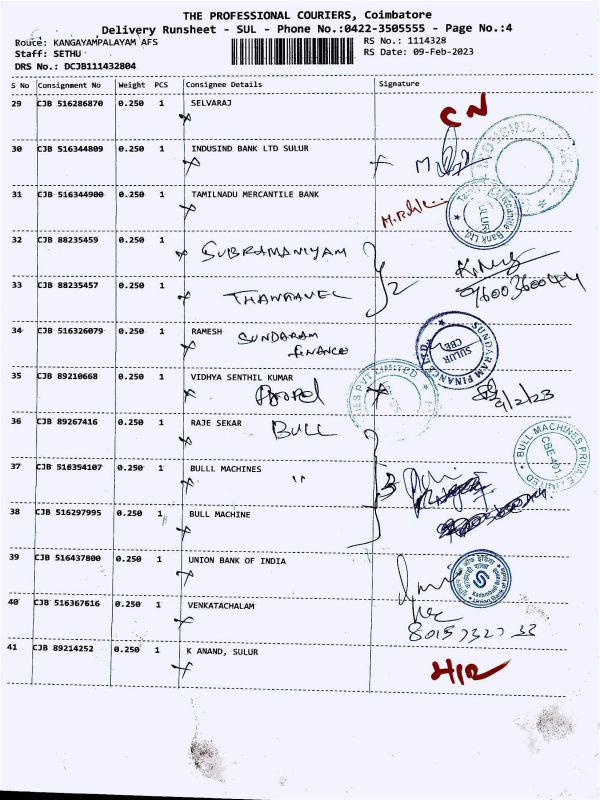 THE PROFESSIONAL COURIERS, Coimbatore
Delivery Runsheet - SUL - Phone No.:0422-3505555 - Page No.:4
Rouce: KANGAYAMPALAYAM AFS RS No.: 1114328
Staff: SETHU RS Date: 09-Feb-2023
DRS No.: DCJB111432804
S No Consignment No Weight PCS Consignee Details Signature
29 CJB 516286870 0.250 1 SELVARAJ
CN
30 CJB 516344809 0.250 1 INDUSIND BANK LTD SULUR
31 CJB 516344900 0.250 1 TAMILNADU MERCANTILE BANK
32 CJB 88235459 0.250 1 SUBRAMANIYAM
33 CJB 88235457 0.250 1 THANGAVEL
2
9600360044
34 CJB 516326079 0.250 1 RAMESH
SUNDARAM
FINANCE
SUNDARAM FINANCE LTD.
SULUR
CBE
35 CJB 89210668 0.250 1 VIDHYA SENTHIL KUMAR
PVT LIMITED
9/2/23
36 CJB 89267416 0.250 1 RAJE SEKAR
BULL
BULL MACHINES PRIVATE LIMITED
CBE-401
37 CJB 516354107 0.250 1 BULLL MACHINES
"
3
38 CJB 516297995 0.250 1 BULL MACHINE
39 CJB 516437800 0.250 1 UNION BANK OF INDIA
40 CJB 516367616 0.250 1 VENKATACHALAM
8015732733
41 CJB 89214252 0.250 1 K ANAND, SULUR
H/R